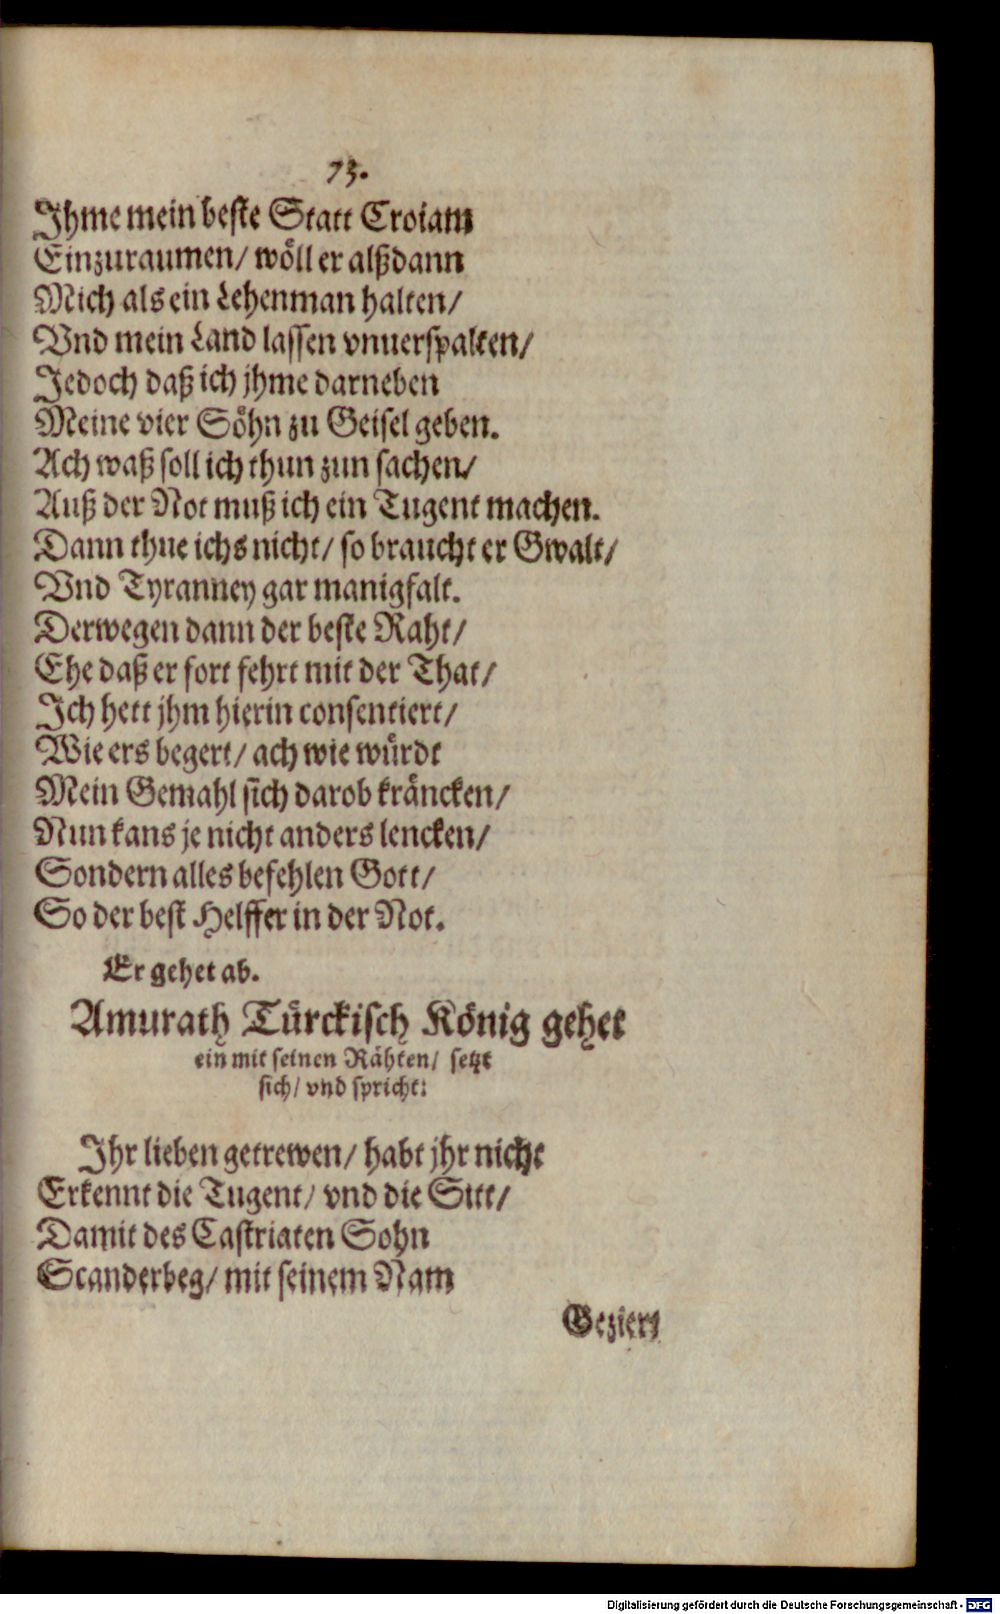 73.
Ihme mein beste Statt Croiam
Einzuraumen/ wöll er alßdann
Mich als ein Lehenman halten/
Vnd mein Land lassen vnuerspalten/
Jedoch daß ich jhme darneben
Meine vier Söhn zu Geisel geben.
Ach waß soll ich thun zun sachen/
Auß der Not muß ich ein Tugent machen.
Dann thue ichs nicht/ so braucht er Gwalt/
Vnd Tyranney gar manigfalt.
Derwegen dann der beste Raht/
Ehe daß er fort fehrt mit der That/
Ich hett jhm hierin consentiert/
Wie ers begert/ ach wie würdt
Mein Gemahl sich darob kräncken/
Nun kans je nicht anders lencken/
Sondern alles befehlen Gott/
So der best Helffer in der Not.
Er gehet ab.
Amurath Türckisch König gehet
ein mit seinen Rähten/ setzt
sich/ vnd spricht:
Ihr lieben getrewen/ habt jhr nicht
Erkennt die Tugent/ vnd die Sitt/
Damit des Castriaten Sohn
Scanderbeg/ mit seinem Nam
Geziert
Digitalisierung gefördert durch die Deutsche Forschungsgemeinschaft - DFG